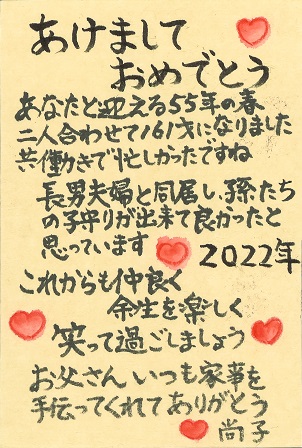 あけまして
おめでとう
あなたと迎える55年の春
二人合わせて161才になりました
共働きで忙しかったですね
長男夫婦と同居し、孫たち
の子守りが出来て良かったと
思っています
2022年
これからも仲良く
余生を楽しく
笑って過ごしましょう
お父さんいつも家事を
手伝ってくれてありがとう
尚子